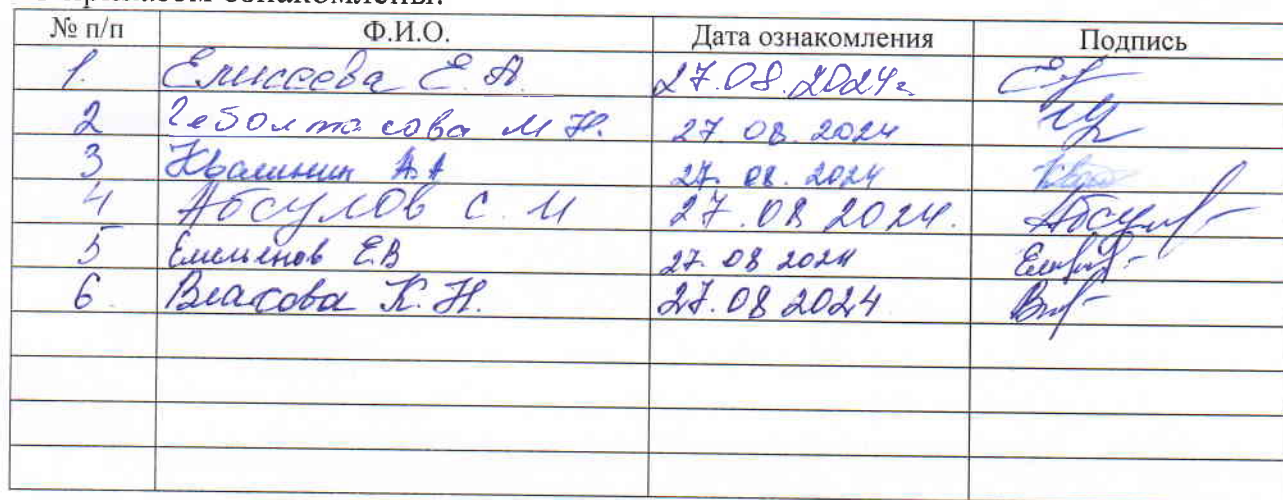 ознакомлены:
№ п/п Ф.И.О. Дата ознакомления Подпись
1. Елисеева Е. А. 27.08.2024г
2 М Н. 27 08 2024
3 Квашнин А.А 27. 08. 2024
4 Абсулов С. И 27.08 2024.
5 Емельянов Е.В 27. 08 2024
6. Власова К. Н. 27.08 2024